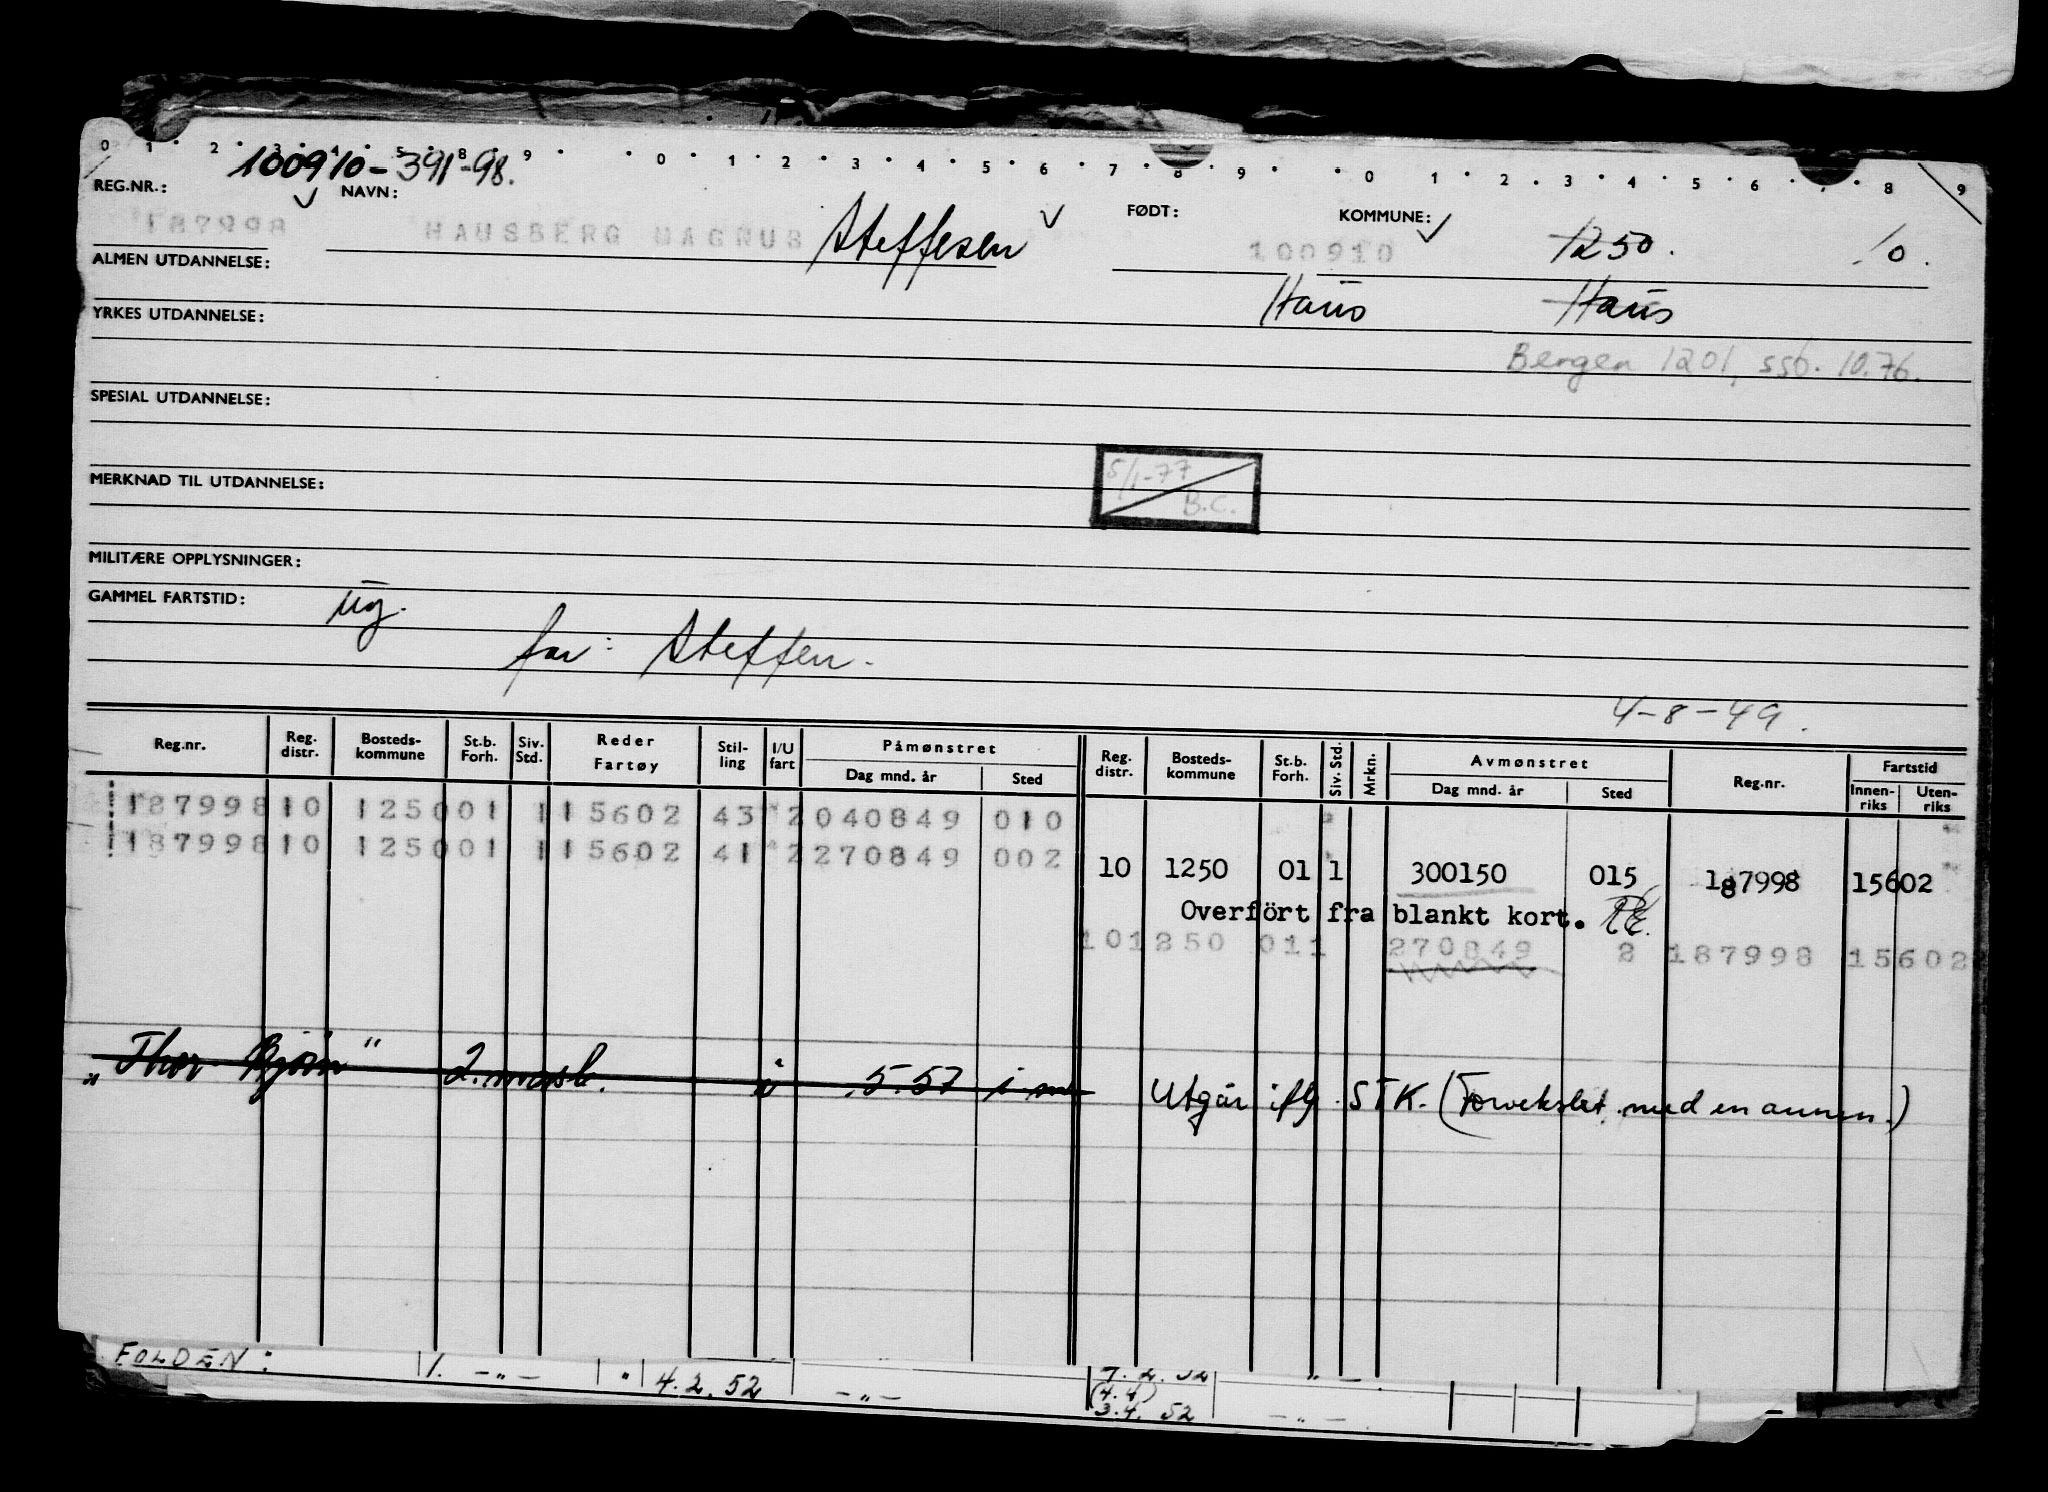 0 1 2 3 4 5 8 9 0 1 2 3 4 5 6 7 8 9 0 1 2 3 4 5 6 7 8 9
100910-391-98.
REG.NR.: NAVN: FØDT: KOMMUNE:
187998 HAUSBERG MAGNUS Steffesen 100910 1250. 10.
ALMEN UTDANNELSE:
Haus Haus
YRKES UTDANNELSE:
Bergen 1201, ssb. 10.76.
SPESIAL UTDANNELSE:
5/1-77
MERKNAD TIL UTDANNELSE:
B.C.
MILITÆRE OPPLYSNINGER:
GAMMEL FARTSTID: ug.
far: Steffen.
4-8-49.
Reg.nr. Reg. distr. Bosteds-kommune St.b. Forh. Siv. Std. Reder Fartøy Stil-ling I/U fart Påmønstret Dag mnd. år Sted Reg. distr. Bosteds-kommune St.b. Forh. Siv. Std. Mrkn. Avmønstret Dag mnd. år Sted Reg.nr. Fartstid Innen-riks Uten-riks
187998 10 1250 01 1 15602 43 2 040849 010
187998 10 1250 01 1 15602 41 2 270849 002
10 1250 01 1 300150 015 187998 15602
Overført fra blankt kort. RE.
10 1250 01 1 270849 2 187998 15602
"Thor Bjørn" 2. mask. u .5.57 i m
Utgår iflg. STK. (Forvekslet med en annen.)
FOLDEN: 1. -"- " 4.2.52 -"- 7.2.52 " -
(4.4)
3.4.52 -"-